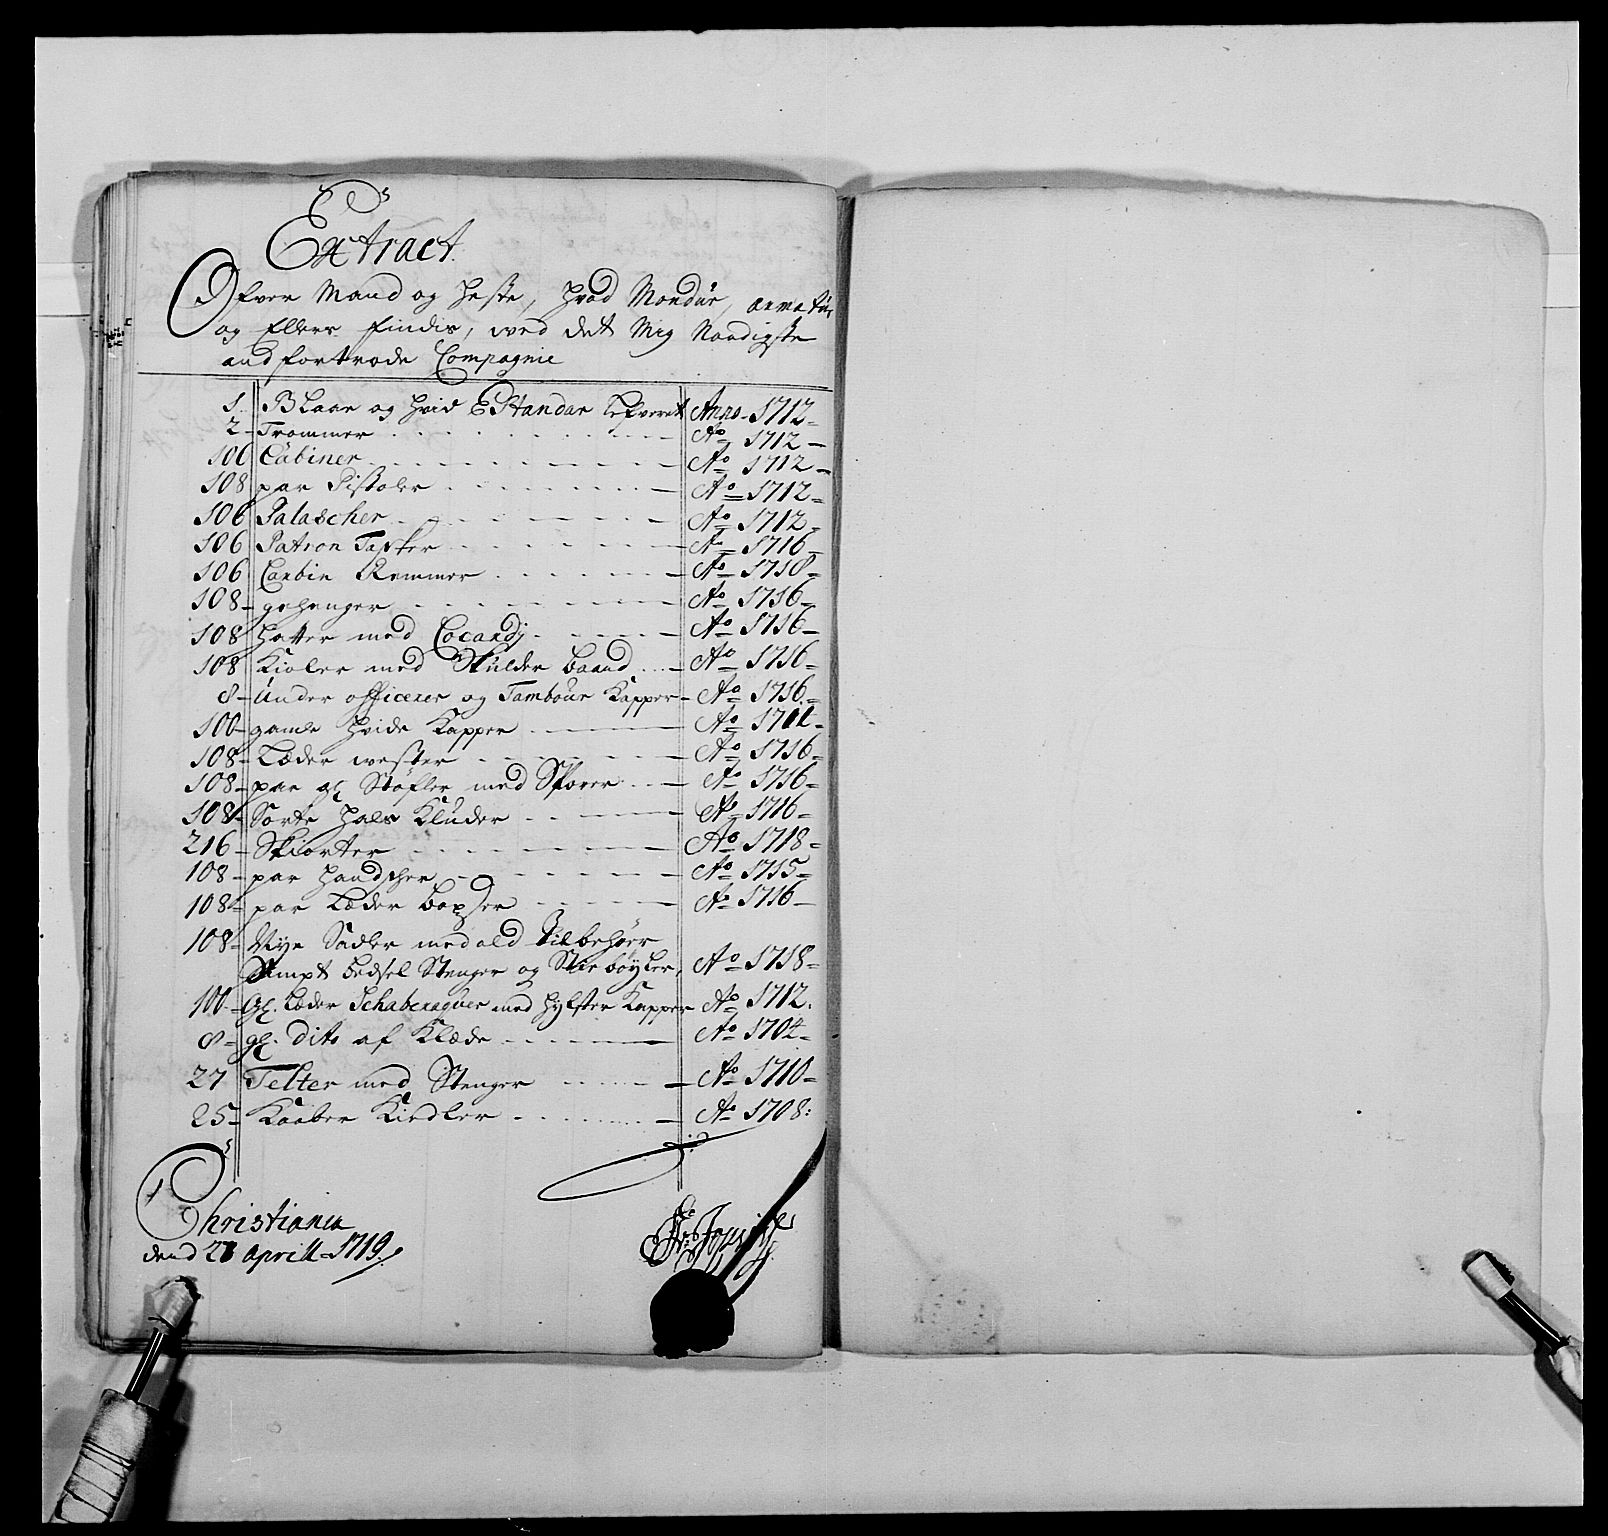 Extract
Ofver Mand og Heste, Hvad Mondur, armatur
og Ellers findis, ved det Mig Naadigste
andfortrode Compagnie
1. Blaar og Hvid EStandar Lefveret Anno 1712
2 Trommer Ao 1712
106 Cabiner Ao 1712
108 par Pistoler Ao 1712
106 Palascher Ao 1712
106 Patron Tasker Ao 1716
106 Carbin Remmer Ao 1710
108 gehenger Ao 1716
108 Hatter med Cocardj Ao 1716
108 Kioler med Skulder baand Ao 1716
8 Under officerer og Tambour Kapper Ao 1716
100 gamle Hvide Kapper Ao
108 Læder wester Ao 1716
108 par gl Støfler med Sporer Ao 1716
108 Sorte Hals Kluder Ao 1716
216 Skiorter Ao 1718
108 par Handsker Ao 1715
108 par Læder boxser Ao 1716
108 Nye Sadler med ald Tilbehør
Sampt bedsel Stenger og Stie bøyler, Ao 1718
100 gl. Læder Schaberaquer med Hylster Kapper Ao 1712
8 gl. dito af Klæde Ao 1704
27 Telter med Stenger Ao 1710
25 Kaaber Kiedler Ao 1708
Christiania
dend 28 Aprill 1719.